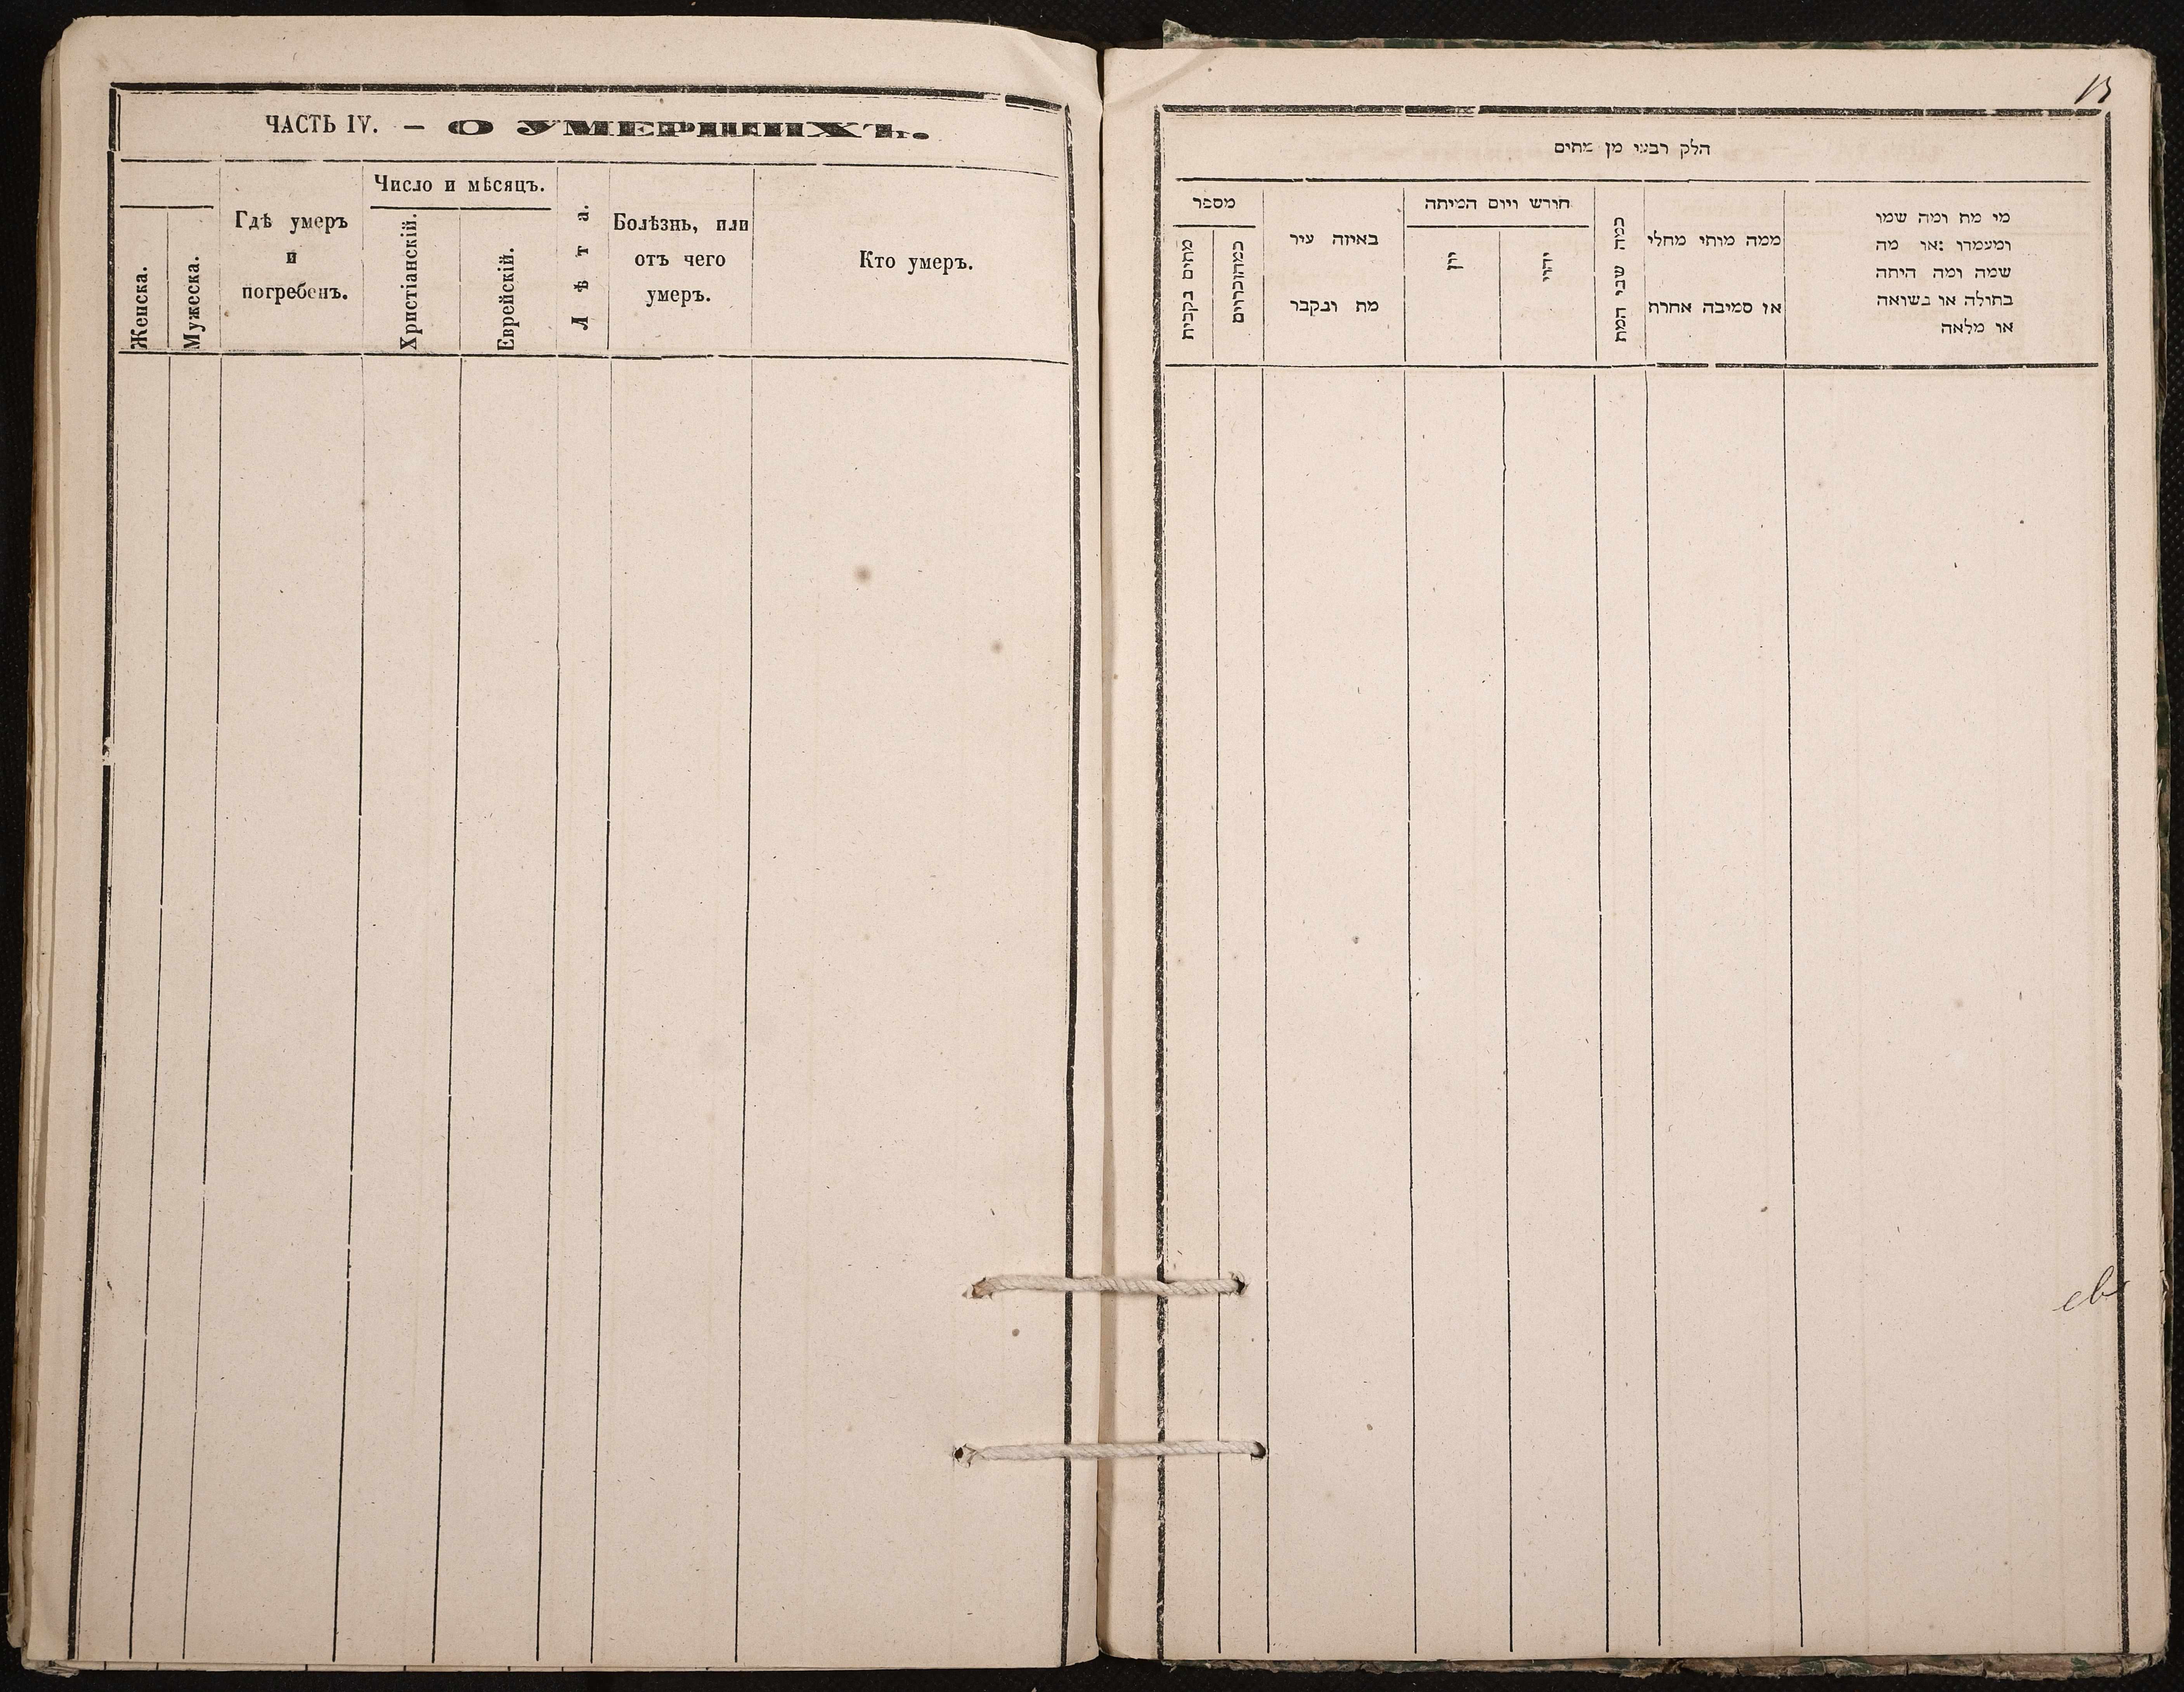 ЧАСТЬ IV. — О УМЕРШИХЪ.
Женска.
Мужеска.
Гдѣ умеръ
и
погребенъ.
Число и мѣсяцъ.
Христіанскій.
Еврейскій.
Лѣта.
Болѣзнь, или
отъ чего
умеръ.
Кто умеръ.
הלק רבעי מן מתים
מספר
באיזה עיר
מת ונקבר
חורש ויום המיתה
יון
כמה שבי המת
ממה מותי מחלי
או סמיבה אחרת
מי מת ומה שמו
ומעמדו :או מה
שמה ומה היתה
בתולה או נשואה
או מלאה